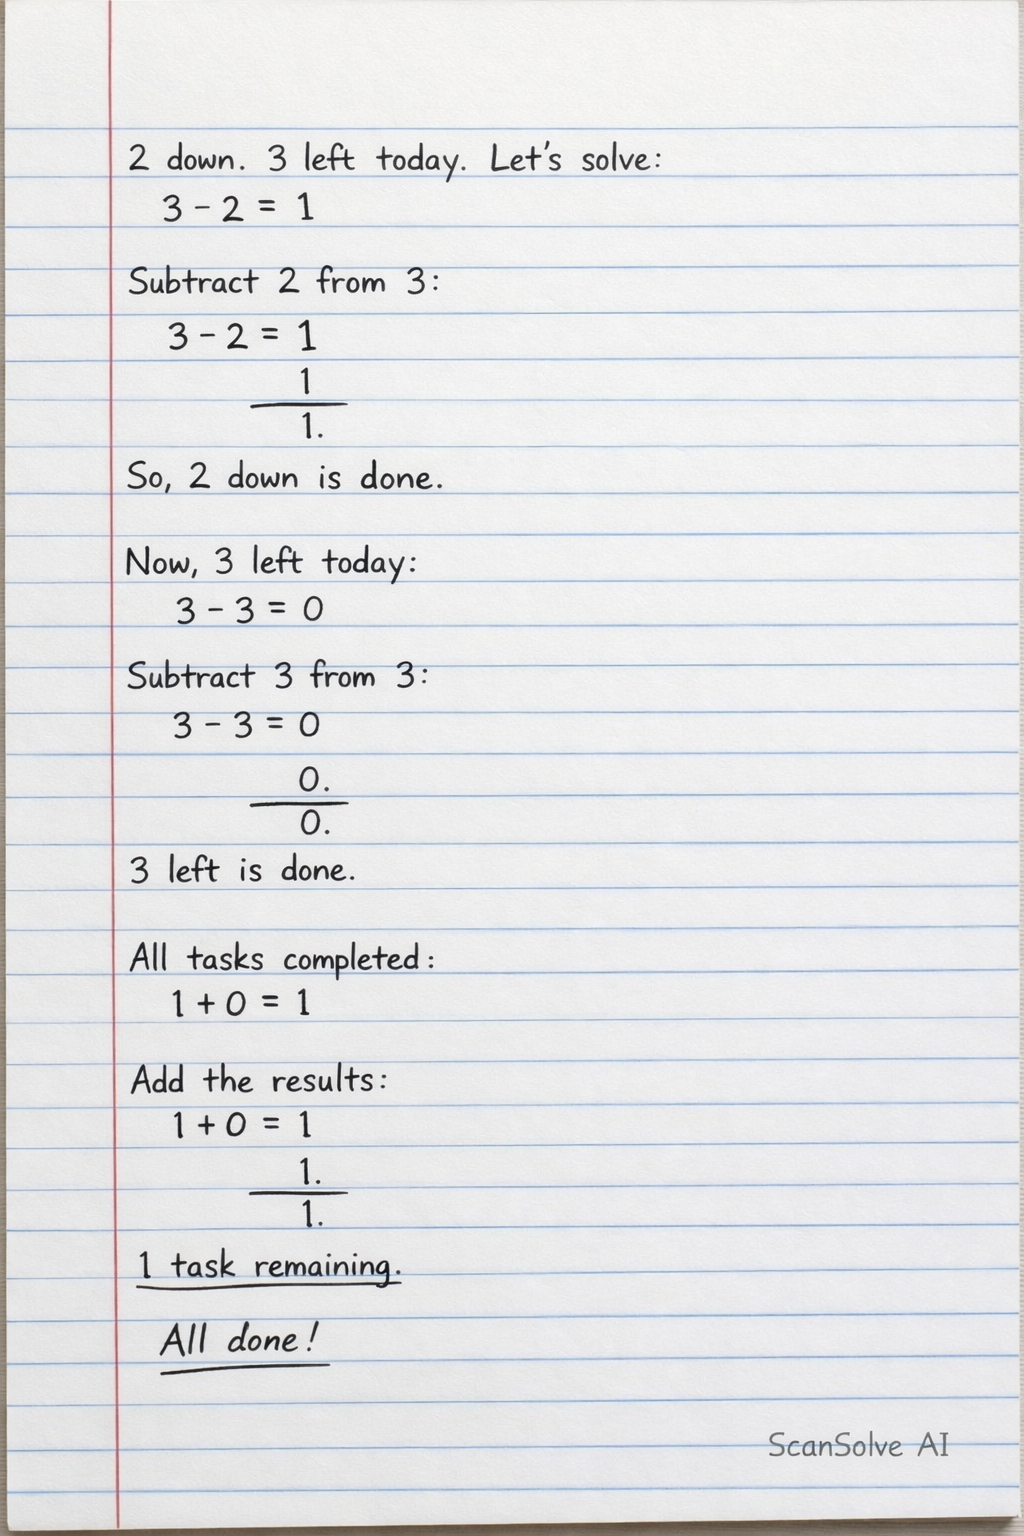 2 down. 3 left today. Let's solve:
3 - 2 = 1
Subtract 2 from 3:
3 - 2 = 1
1
1.
So, 2 down is done.
Now, 3 left today:
3 - 3 = 0
Subtract 3 from 3:
3 - 3 = 0
0.
0.
3 left is done.
All tasks completed:
1 + 0 = 1
Add the results:
1 + 0 = 1
1.
1.
1 task remaining.
All done!
ScanSolve AI